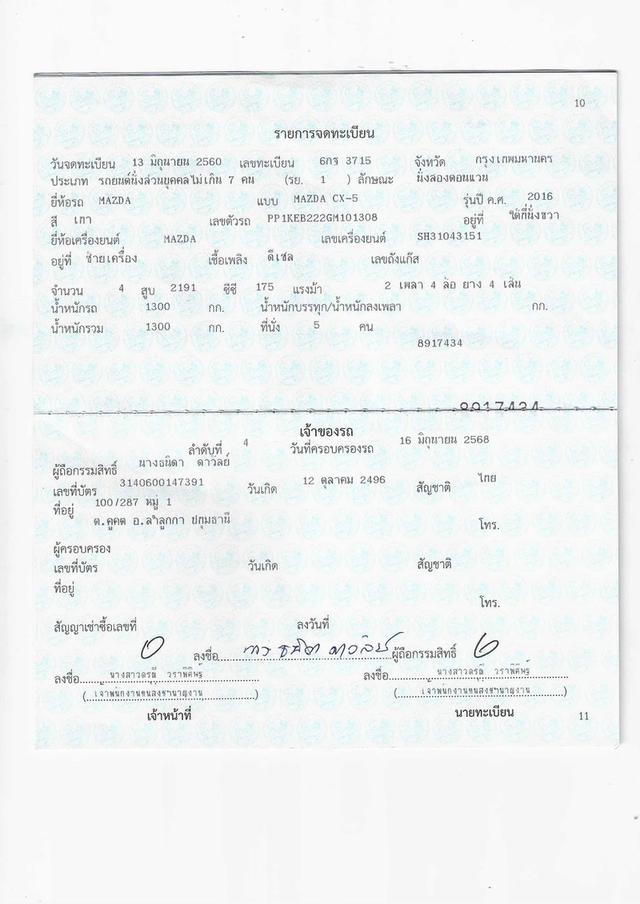 10
รายการจดทะเบียน
วันจดทะเบียน 13 มิถุนายน 2560 เลขทะเบียน 6กร 3715 จังหวัด กรุงเทพมหานคร
ประเภท รถยนต์นั่งส่วนบุคคลไม่เกิน 7 คน (รย. 1 ) ลักษณะ นั่งสองตอนแวน
ยี่ห้อรถ MAZDA แบบ MAZDA CX-5 รุ่นปี ค.ศ. 2016
สี เทา เลขตัวรถ PP1KEB222GM101308 อยู่ที่ ใต้ที่นั่งขวา
ยี่ห้อเครื่องยนต์ MAZDA เลขเครื่องยนต์ SH31043151
อยู่ที่ ซ้ายเครื่อง เชื้อเพลิง ดีเซล เลขถังแก๊ส
จำนวน 4 สูบ 2191 ซีซี 175 แรงม้า 2 เพลา 4 ล้อ ยาง 4 เส้น
น้ำหนักรถ 1300 กก. น้ำหนักบรรทุก/น้ำหนักลงเพลา กก.
น้ำหนักรวม 1300 กก. ที่นั่ง 5 คน
8917434
8917434
เจ้าของรถ
ลำดับที่ 4 วันที่ครอบครองรถ 16 มิถุนายน 2568
ผู้ถือกรรมสิทธิ์ นางธนิดา ดาวลัย์
เลขที่บัตร 3140600147391 วันเกิด 12 ตุลาคม 2496 สัญชาติ ไทย
ที่อยู่ 100/287 หมู่ 1
ต.คูคต อ.ลำลูกกา ปทุมธานี โทร.
ผู้ครอบครอง
เลขที่บัตร วันเกิด สัญชาติ
ที่อยู่
โทร.
สัญญาเช่าซื้อเลขที่ ลงวันที่
ลงชื่อ ผู้ถือกรรมสิทธิ์
ลงชื่อ นางสาวดรุณี วราพิศิษฐ์ ลงชื่อ นางสาวดรุณี วราพิศิษฐ์
(เจ้าพนักงานขนส่งชำนาญงาน) (เจ้าพนักงานขนส่งชำนาญงาน)
เจ้าหน้าที่ นายทะเบียน 11